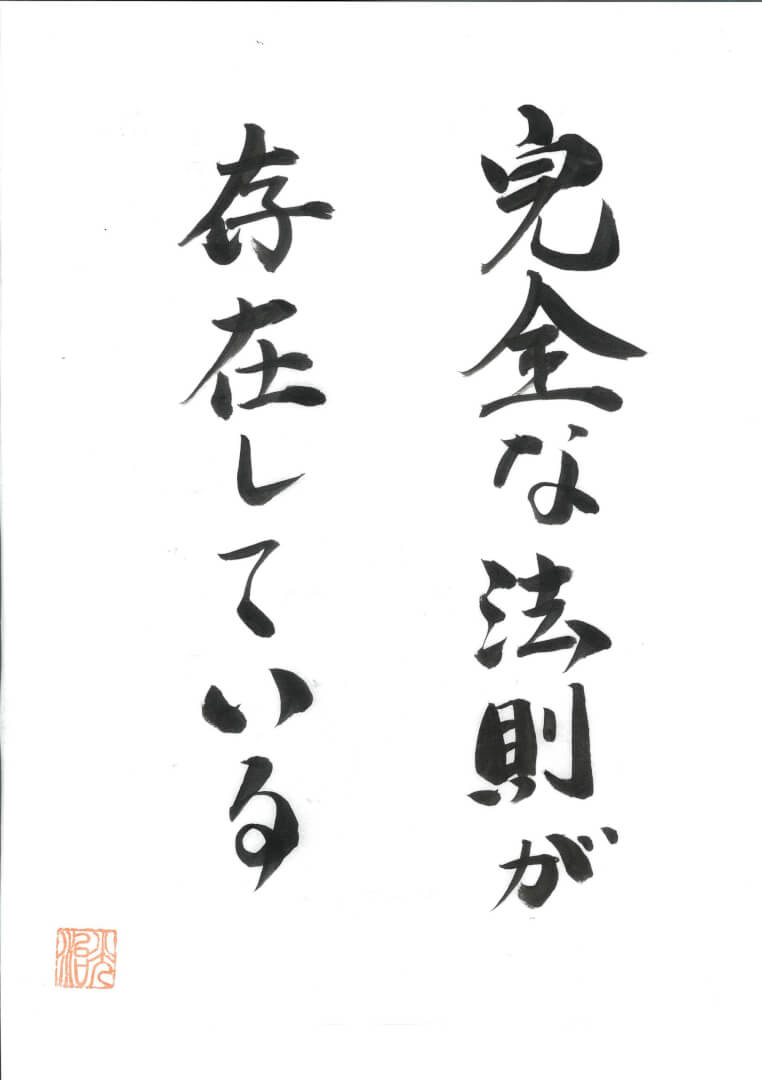 完全な法則が
存在している